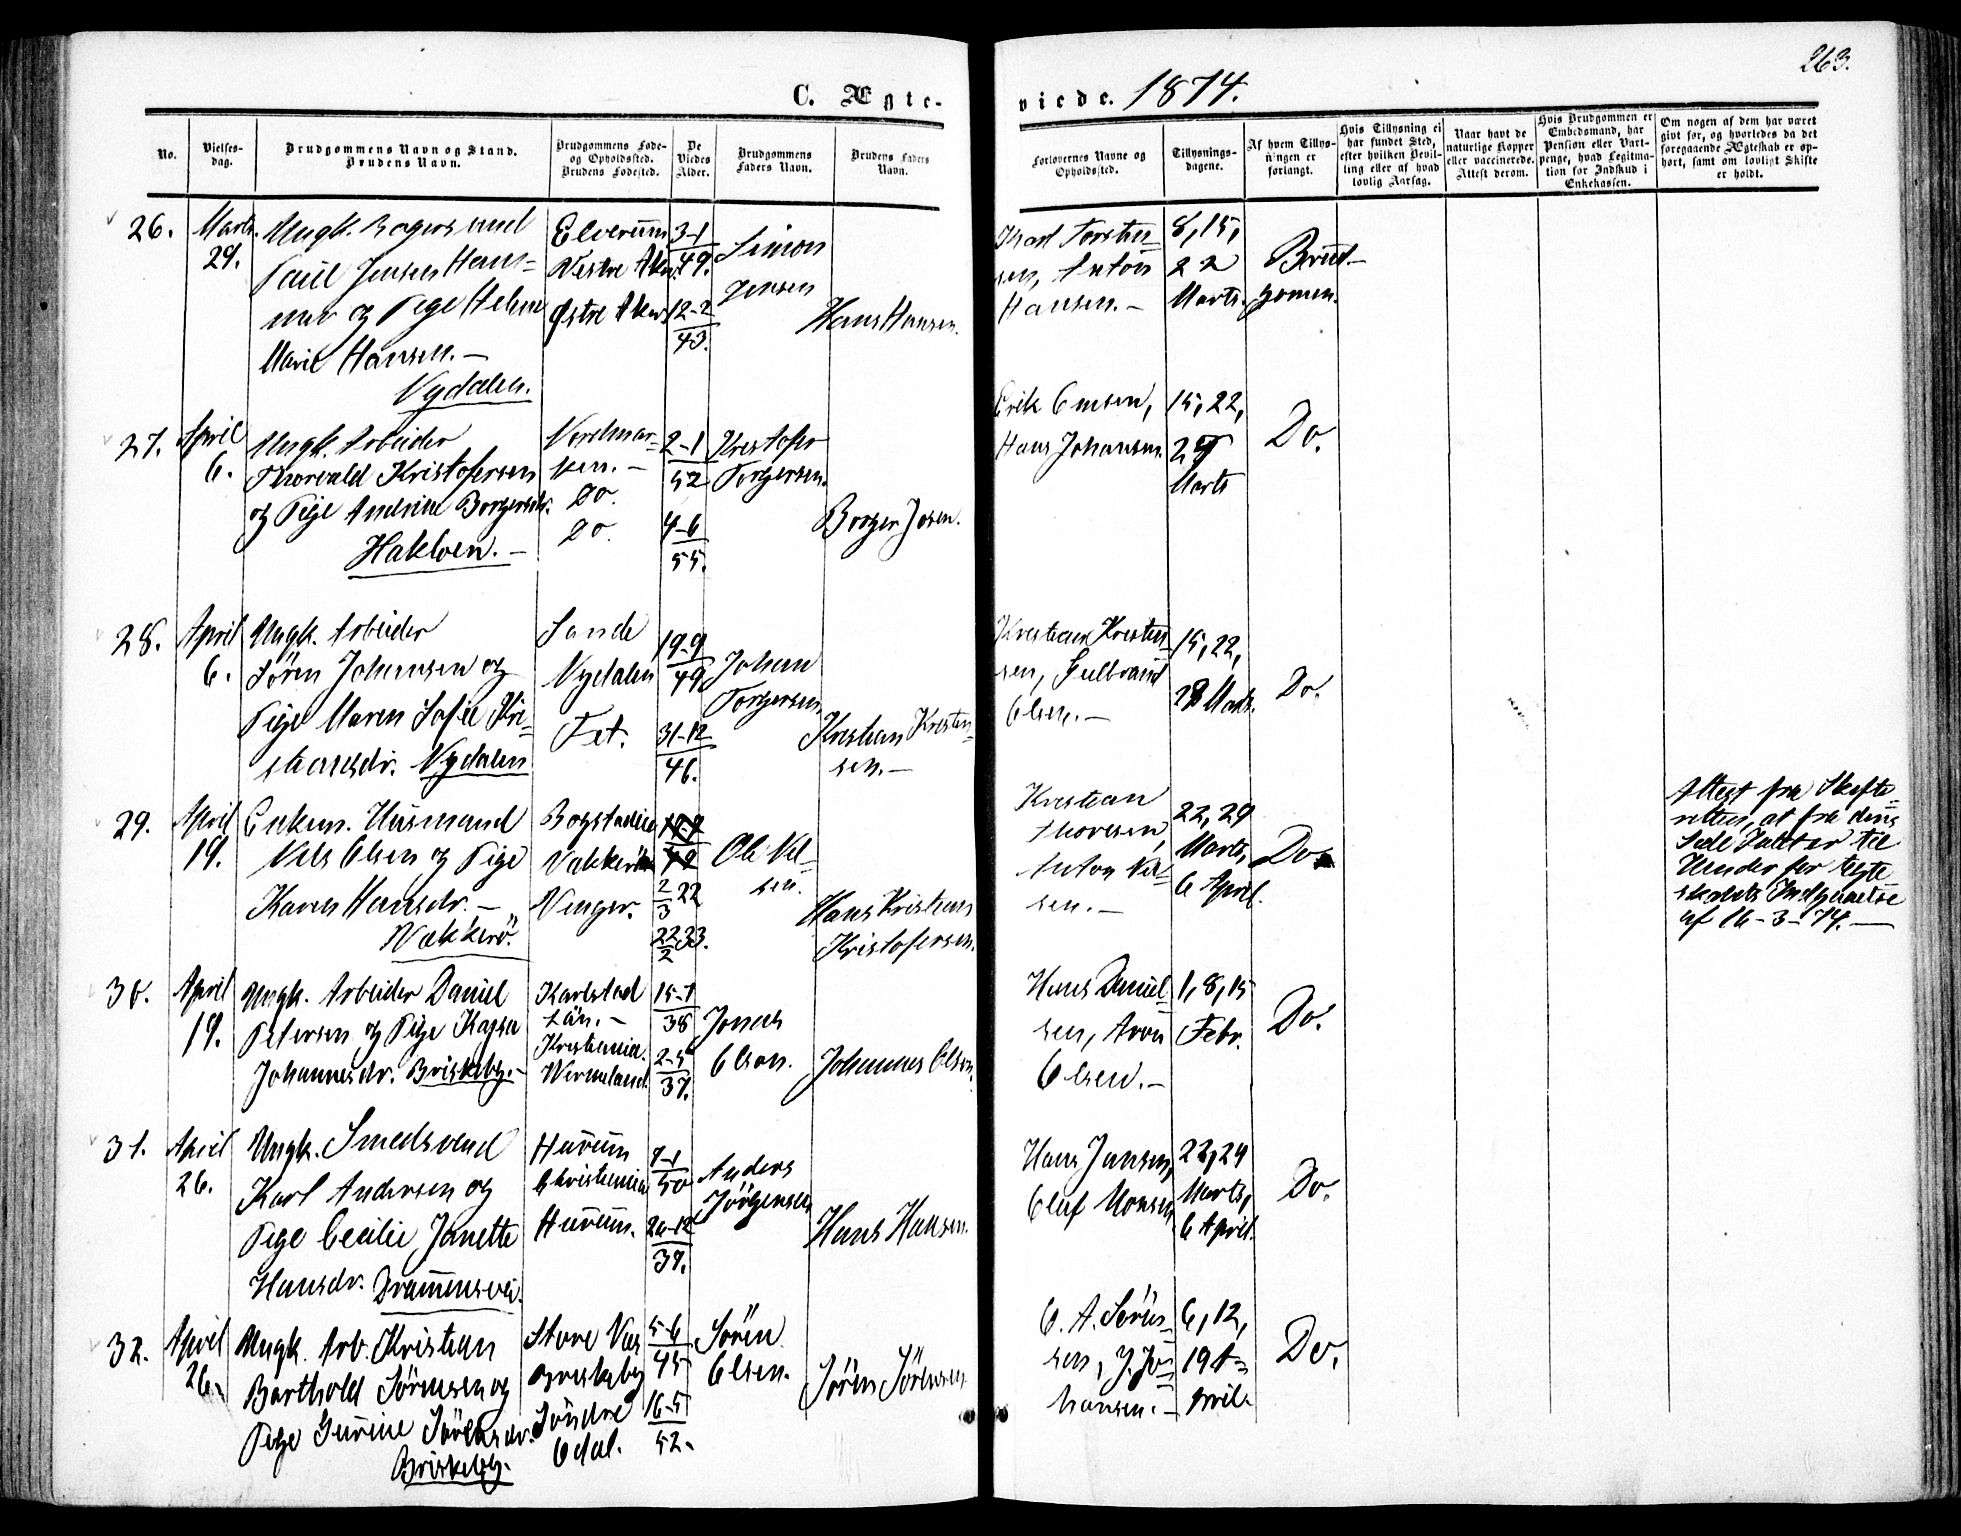 263.
C. Ægte-
viede. 1874.
No.
Vielses-
dag.
Brudgommens Navn og Stand.
Brudens Navn.
Brudgommens Føde-
og Opholdssted.
Brudens Fødested.
De
Viedes
Alder.
Brudgommens
Faders Navn.
Brudens Faders
Navn.
Forlovernes Navne og
Opholdssted.
Tillysnings-
dagene.
Af hvem Tillys-
ningen er
forlangt.
Hvis Tillysning ei
har fundet Sted,
efter hvilken Bevil-
ling eller af hvad
lovlig Aarsag.
Naar havt de
naturlige Kopper
eller vaccinerede.
Attest derom.
Hvis Brudgommen er
Embedsmand, har
Pension eller Vart-
penge, hvad Legitima-
tion for Indskud i
Enkekassen.
Om nogen af dem har været
gift før, og hvorledes da det
foregaaende Ægteskab er op-
hørt, samt om lovligt Skifte
er holdt.
26.
Marts
29.
Ungk. Bagersvend
Paul Jensen Ham-
mer og Pige Helene
Marie Hansen. —
Nydalen.
Elverum
Vestre Aker
Østre Aker
3-1
49.
12-2
43.
Simon
Jensen
Hans Hansen.
Karl Torsten-
sen, Anton
Hansen. —
8, 15,
22
Marts.
Brud-
gomen.
27.
April
6.
Ungk. Arbeider
Thorvald Kristofersen
og Pige Andrine Borgersdr.
Hakloen. —
Nordmar-
ken. —
Do.
Do.
2-1
52
4-6
55.
Kristofer
Torgersen.
Borger Josen.
Erik Ensen,
Hans Johansen.
15, 22,
29
Marts
Do.
28.
April
6.
Ungk. Arbeider
Søren Johansen og
Pige Maren Sofie Kri-
stiansdr. Nydalen
Sande
Nydalen
Fet.
19-9
49
31-12
46.
Johan
Torgersen
Kristian Kristian-
sen. —
Kristian Kristian-
sen, Gulbrand
Olsen. —
15, 22,
29 Marts.
Do.
29.
April
19.
Enkem. Husmand
Nils Olsen og Pige
Karen Hansdr. —
Vækkerø.
Bogstadlia
Vækkerø
Vinger.
2
3 22
22
2 33.
Ole Nil-
sen.
Hans Kristian
Kristofersen.
Kristian
Thoresen,
Anton Nil-
sen. —
22, 29
Marts,
6 April.
Do.
Attest fra Skifte-
retten, at fra dens
Side Intet er til
Hinder for Ægte
skabets Indgaaelse
af 16-3-74. —
30.
April
19.
Ungk. Arbeider Daniel
Petersen og Pige Kajsa
Johannesdr. Briskeby. —
Karlstad
Län. —
Kristiania.
Wermeland.
15-1
38
2-5
37.
Jonas
Olson.
Johannes Olson.
Hans Daniel-
sen, Aron
Olsen. —
1, 8, 15
Febr.
Do.
31.
April
26.
Ungk. Smedsvend
Karl Andersen og
Pige Cecilie Janette
Hansdr. Drammensvei.
Hurum
Christiania
Hurum.
7-1
50
26-12
37.
Anders
Jörgensen
Hans Hansen.
Hans Jansen,
Oluf Monsen
22, 29
Marts,
6 April.
Do.
32.
April
26.
Ungk. Arb. Kristian
Barthold Sörensen og
Pige Gurine Sörensdr.
Briskeby.
Store Næs
Briskeby
Söndre
Odal.
5-6
45
16-5
52.
Sören
Olsen.
Sören Sörensen
O. A. Sören-
sen, J. Jo-
hansen. —
6, 12,
19 A-
pril.
Do.